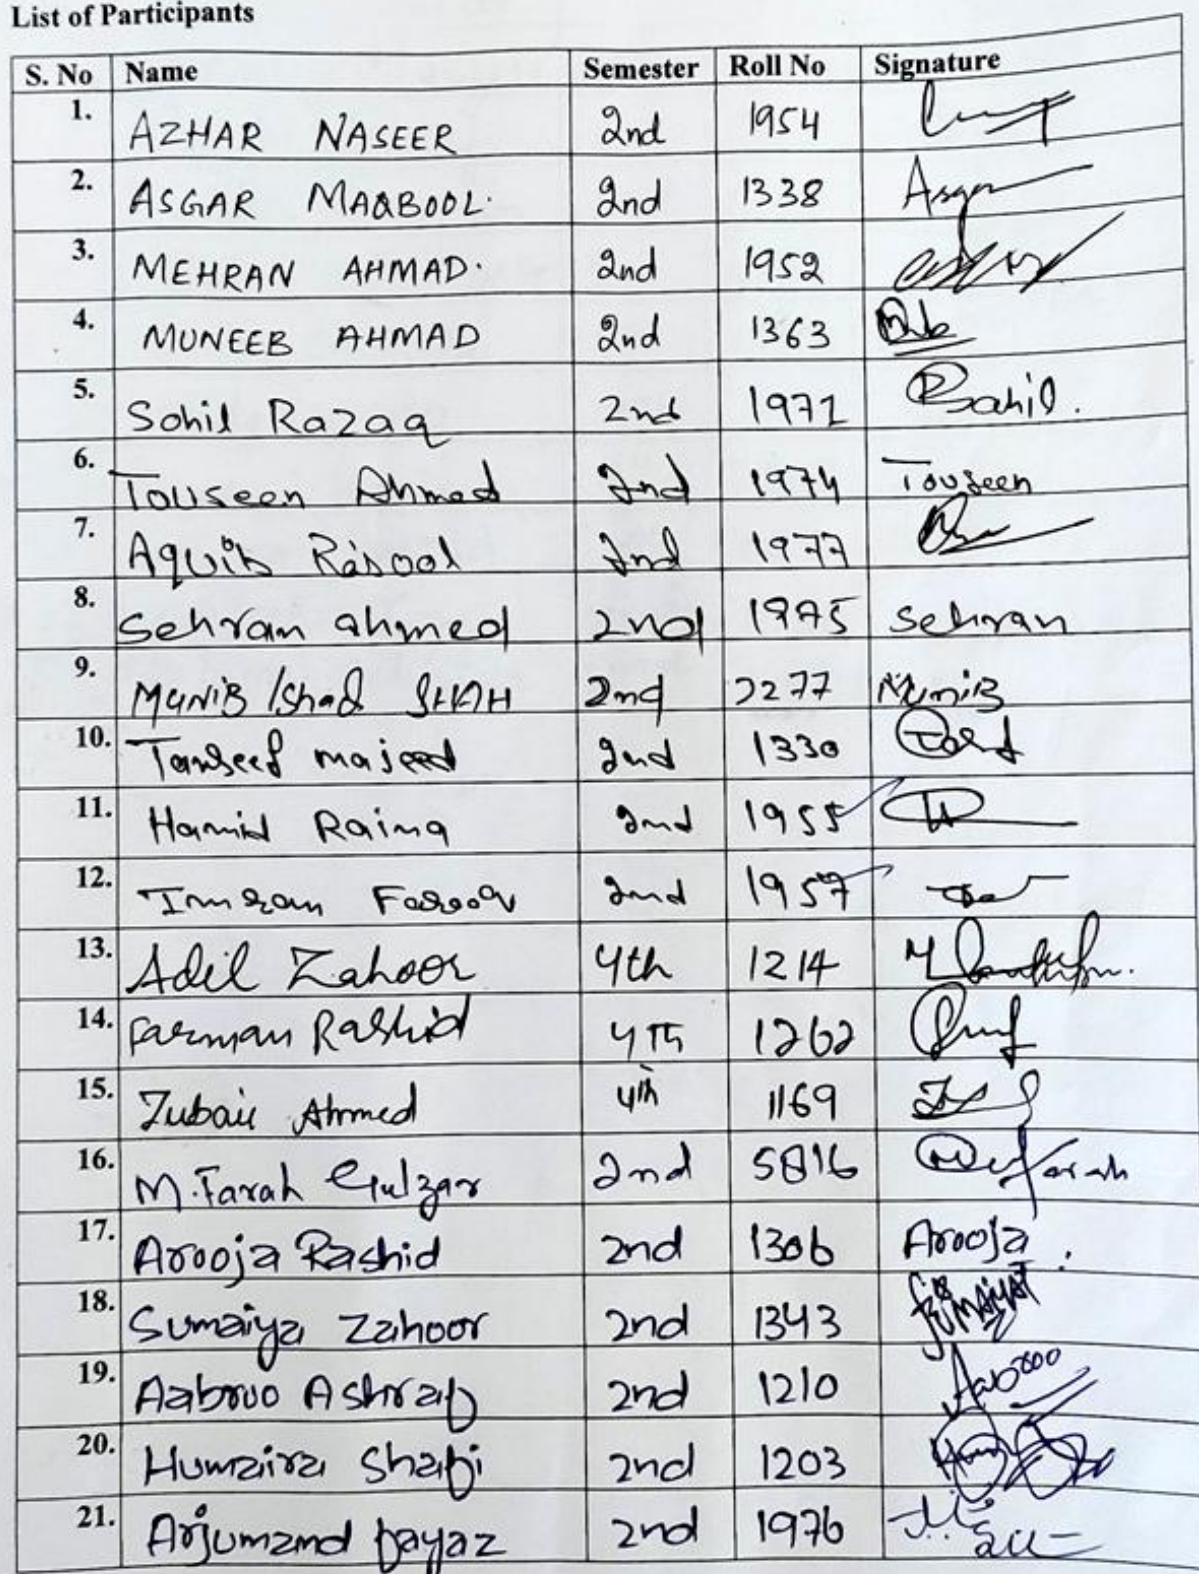 List of Participants
S. No Name Semester Roll No Signature
1. AZHAR NASEER 2nd 1954
2. ASGAR MAQBOOL. 2nd 1338 Asgar
3. MEHRAN AHMAD. 2nd 1952
4. MUNEEB AHMAD 2nd 1363
5. Sohil Razaq 2nd 1971 Sahil.
6. Touseen Ahmad 2nd 1974 Touseen
7. Aquib Rasool 2nd 1977
8. Sehran ahmed 2nd 1975 Sehran
9. MUNIB Ishad SHAH 2nd 2277 MuniB
10. Tawseef majeed 2nd 1330
11. Hamid Raina 2nd 1955
12. Imran Farooq 2nd 1957
13. Adil Zahoor 4th 1214
14. Farman Rashid 4th 1262
15. Zubair Ahmed 4th 1169
16. M. Farah Gulzar 2nd 5816 farah
17. Arooja Rashid 2nd 1306 Arooja.
18. Sumaiya Zahoor 2nd 1343
19. Aabroo Ashraf 2nd 1210 Aabroo
20. Humaira Shafi 2nd 1203
21. Arjumand fayaz 2nd 1976